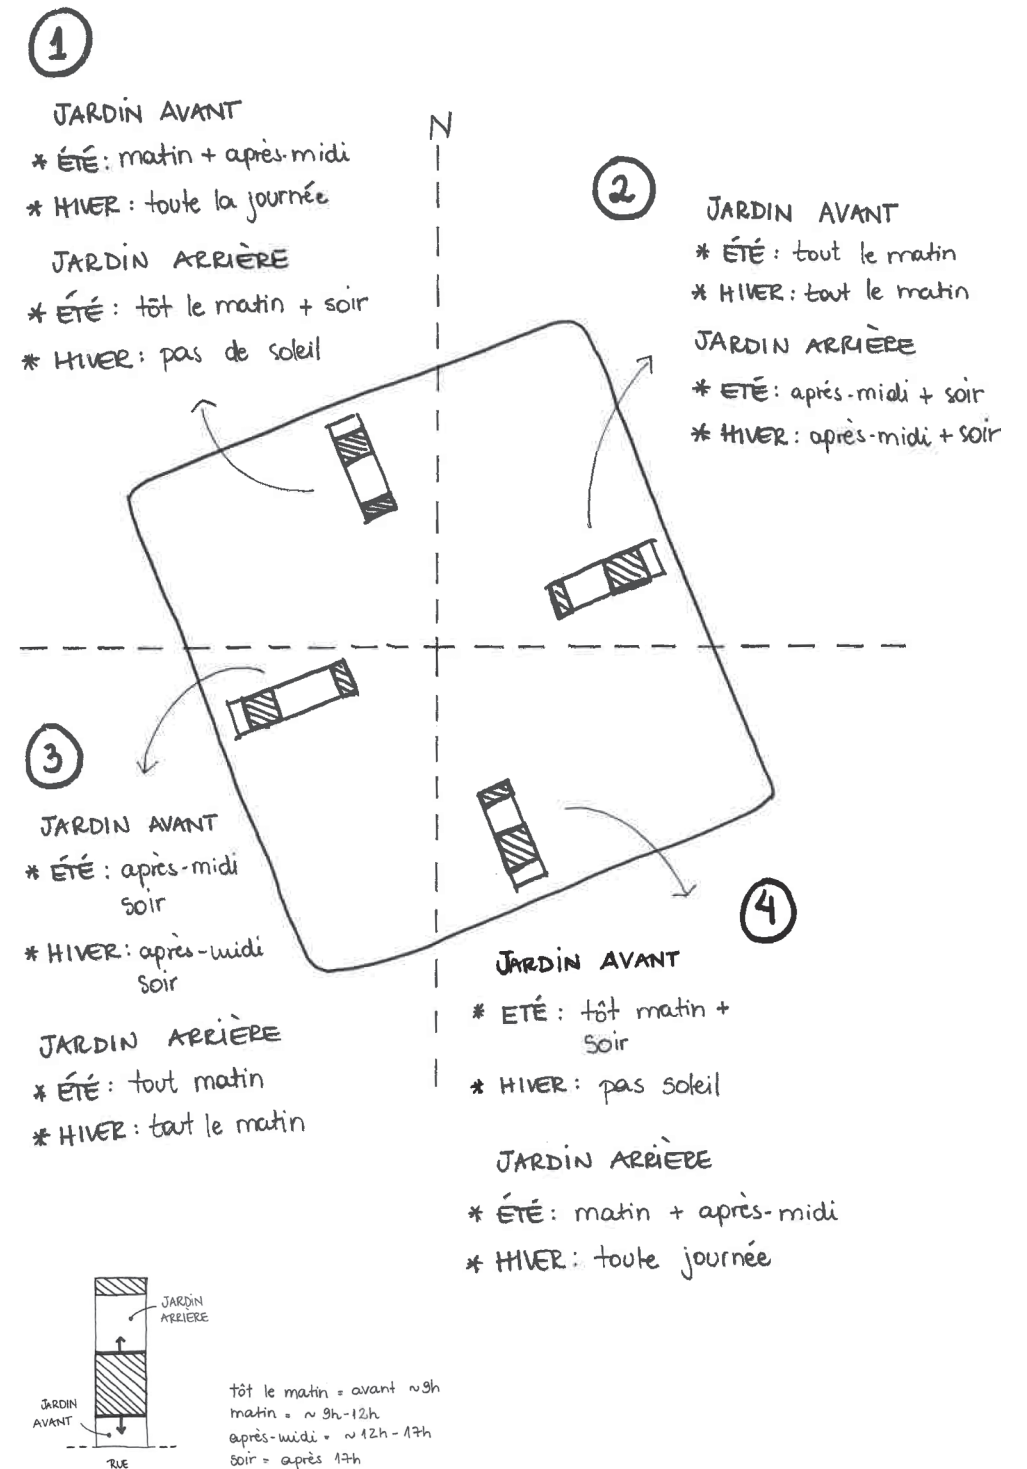 1
JARDIN AVANT
* ÉTÉ : matin + après-midi
* HIVER : toute la journée
JARDIN ARRIÈRE
* ÉTÉ : tôt le matin + soir
* HIVER : pas de soleil
N
2
JARDIN AVANT
* ÉTÉ : tout le matin
* HIVER : tout le matin
JARDIN ARRIÈRE
* ETÉ : aprés-midi + soir
* HIVER : après-midi + soir
3
JARDIN AVANT
* ÉTÉ : après-midi
soir
* HIVER : après-midi
soir
JARDIN ARRIÈRE
* ÉTÉ : tout matin
* HIVER : tout le matin
4
JARDIN AVANT
* ETÉ : tôt matin +
soir
* HIVER : pas soleil
JARDIN ARRIÈRE
* ÉTÉ : matin + après-midi
* HIVER : toute journée
JARDIN
ARRIERE
JARDIN
AVANT
RUE
tôt le matin = avant ~9h
matin = ~ 9h-12h
après-midi = ~12h-17h
soir = après 17h